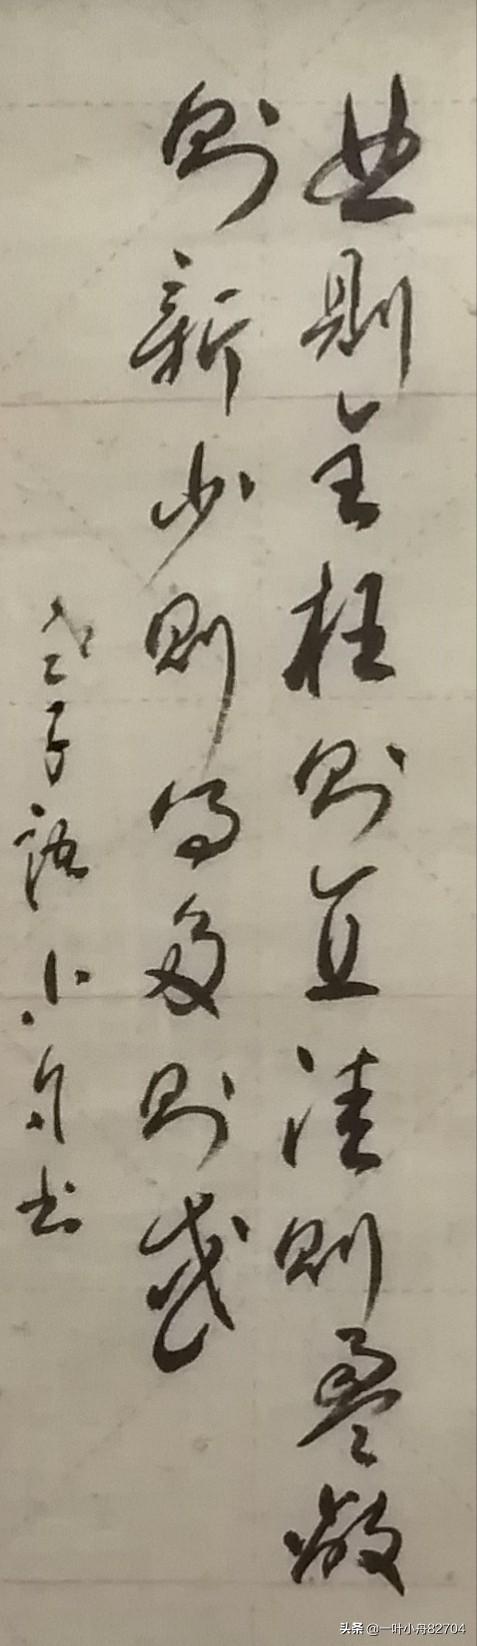 曲则全枉则直洼则盈敝
则新少则得多则惑
老子语小舟书
头条 @一叶小舟82704